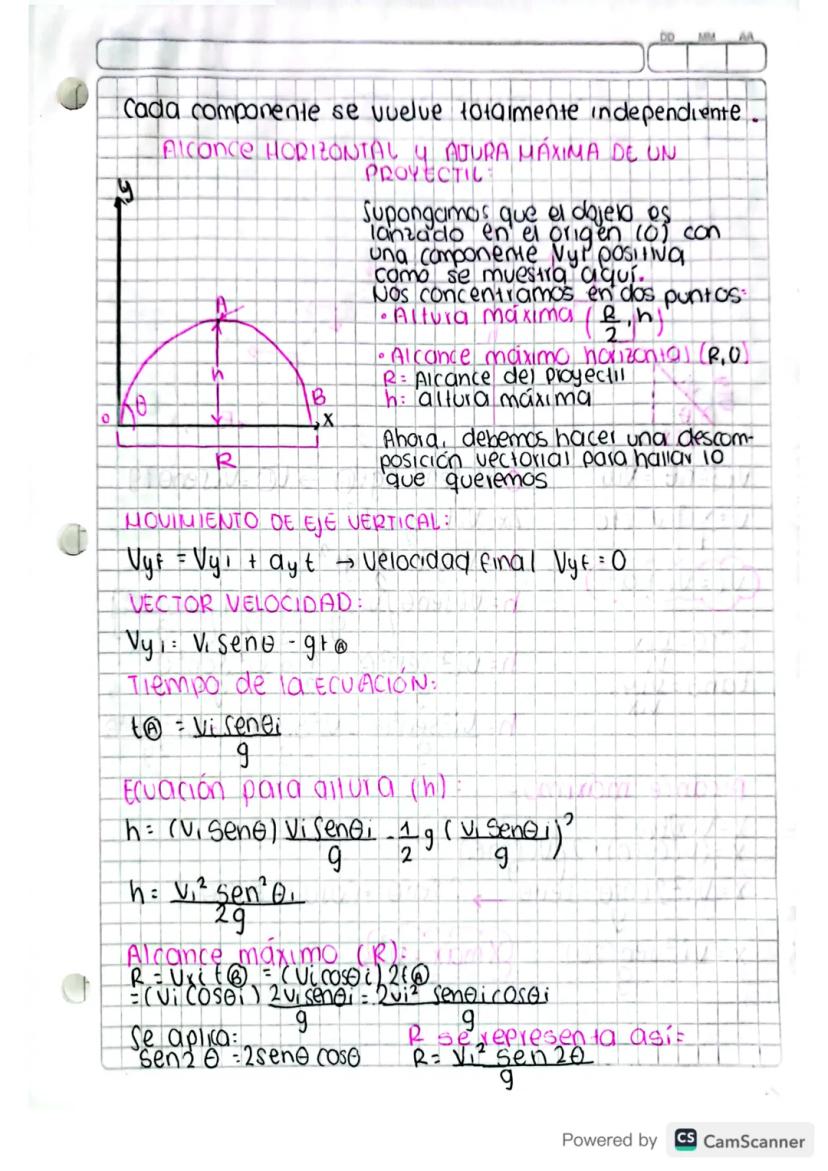 DD MM AA
Cada componente se vuelve totalmente independiente.
Alcance HORIZONTAL y ALTURA MÁXIMA DE UN
PROYECTIL:
y
Supongamos que el objeto es
lanzado en el origen (0) con
una componente Vyi positiva
como se muestra aquí.
Nos concentramos en dos puntos:
• Altura máxima (R/2, h)
• Alcance máximo horizontal (R,0)
R = Alcance del proyectil
h: altura máxima
A
h
B
0 θ x
R
Ahora, debemos hacer una descom-
posición vectorial para hallar lo
que queremos
MOVIMIENTO DE EJE VERTICAL:
Vyf = Vyi + ayt → Velocidad final Vyf = 0
VECTOR VELOCIDAD:
Vyi = Vi senθ - gt Ⓐ
Tiempo de la ECUACIÓN:
tⒶ = Vi senθi / g
Ecuación para altura (h):
h = (Vi senθ) Vi senθi / g - 1/2 g (Vi senθi / g)²
h = Vi² sen²θi / 2g
Alcance máximo (R):
R = Vxi tⒷ = (Vi cosθi) 2tⒶ
= (Vi cosθi) 2Vi senθi / g = 2Vi² senθi cosθi / g
Se aplica:
sen2θ = 2senθ cosθ
R se representa así:
R = Vi² sen2θ / g
Powered by CS CamScanner